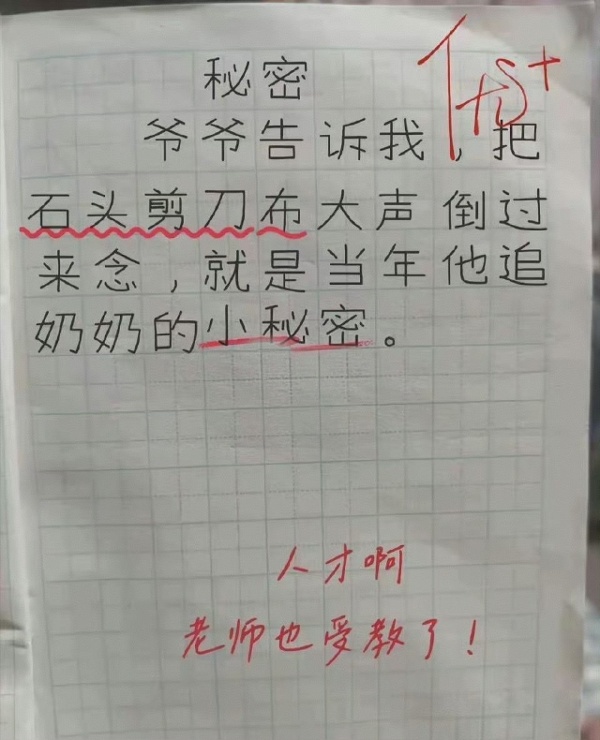 秘密
爷爷告诉我，把
石头剪刀布大声倒过
来念，就是当年他追
奶奶的小秘密。
人才啊
老师也受教了！